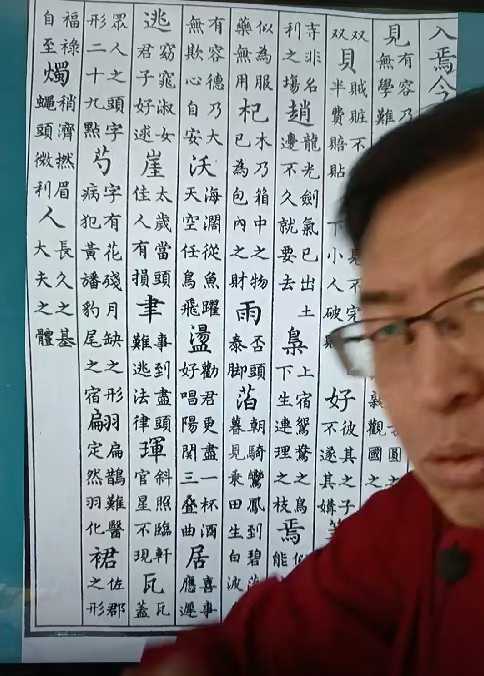 入焉今
見有容乃無學難
双双貝賊賍不半費賠貼下小人破好彼其之子不遂其媾
寺非名利之場趙龍光劍氣已出土邊不久就要去梟上宿鴛鴦之鳥下生連理之枝焉似能
似為服藥無用杞木乃箱中之物已為包內之財雨否頭泰脚萡朝騎鸞鳳到碧落暮見桑田生白波
有容德乃大無欺心自安沃海濶從魚躍天空任鳥飛盪勸君更盡一杯酒好唱陽関三叠曲居喜事應遲
逃窈窕淑女君子好逑崖太歲當頭佳人有損聿事到盡頭難逃法律琿斜照臨軒官星不現瓦瓦蓋
眾人之頭字形二十九點芍字有花殘月缺之形病犯黃旛豹尾之宿翩扁鵲難醫定然羽化裙佐郡之形
福祿自至燭稍濟撚眉蝇頭微利人長久之基大夫之體